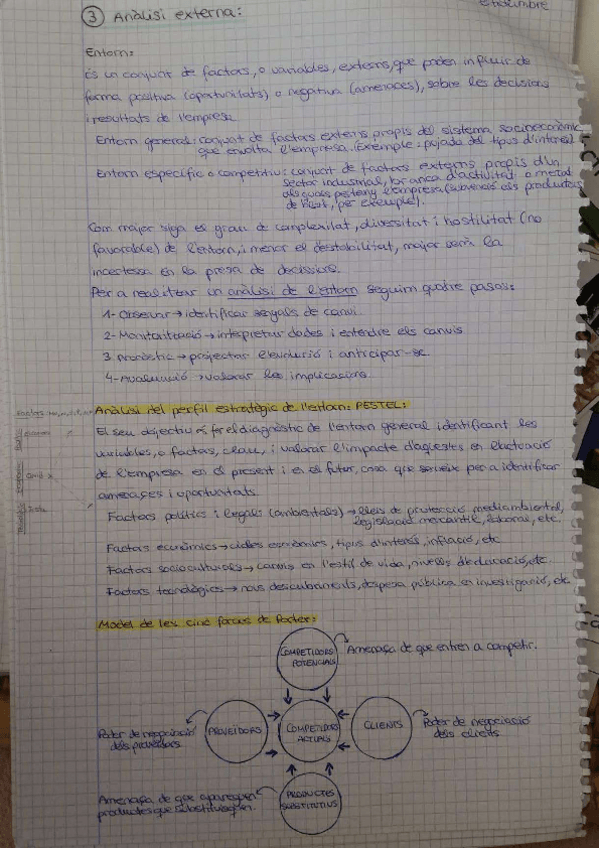 3 Anàlisi externa:
Entorn:
És un conjunt de factors, o variables, externs, que poden influir de
forma positiva (oportunitats) o negativa (amenaces), sobre les decisions
i resultats de l'empresa.
Entorn general: conjunt de factors externs propis del sistema socioeconòmic
que envolta l'empresa. (Exemple: pujada del tipus d'interès)
Entorn específic o competitiu: conjunt de factors externs propis d'un
sector industrial, branca d'activitat o metal
als quals pertany l'empresa (subvenció als productors
per exemple).
Com major siga es grau de complexitat, diversitat i hostilitat (no
favorable) de l'entorn, i menor el d'estabilitat, major serà la
incertessa en la presa de decisions.
Per a realitzar un anàlisi de l'entorn seguim quatre pasos:
1- Observar → identificar senyals de canvi.
2- Monitorització → interpretar dades i entendre els canvis
3. Pronòstic → projectar l'evolució i anticipar-se.
4- Avaluació → valorar les implicacions.
Anàlisi del perfil estratègic de l'entorn: PESTEL:
El seu objectiu és fer el diagnòstic de l'entorn general identificant les
variables, o factors, clau, i valorar l'impacte d'aquestes en l'actuació
de l'empresa en el present i en el futur, cosa que serveix per a identificar
amenaces i oportunitats.
Factors polítics i legals (ambientals) → lleis de protecció mediambiental,
legislació mercantil, laboral, etc.
Factors econòmics → cicles econòmics, tipus d'interès, inflació, etc
Factors socioculturals → canvis en l'estil de vida, nivells d'educació, etc.
Factors tecnològics → nous descubriments, despesa pública en investigació, etc
Model de les cinc forces de Porter:
COMPETIDORS
POTENCIALS
Amenaça de que entren a competir.
PROVEÏDORS
Poder de negociació
dels proveïdors
COMPETIDORS
ACTUALS
CLIENTS
Poder de negociació
dels clients
PRODUCTES
SUBSTITUTIUS
Amenaça de que apareguen
productes que substitueixen.